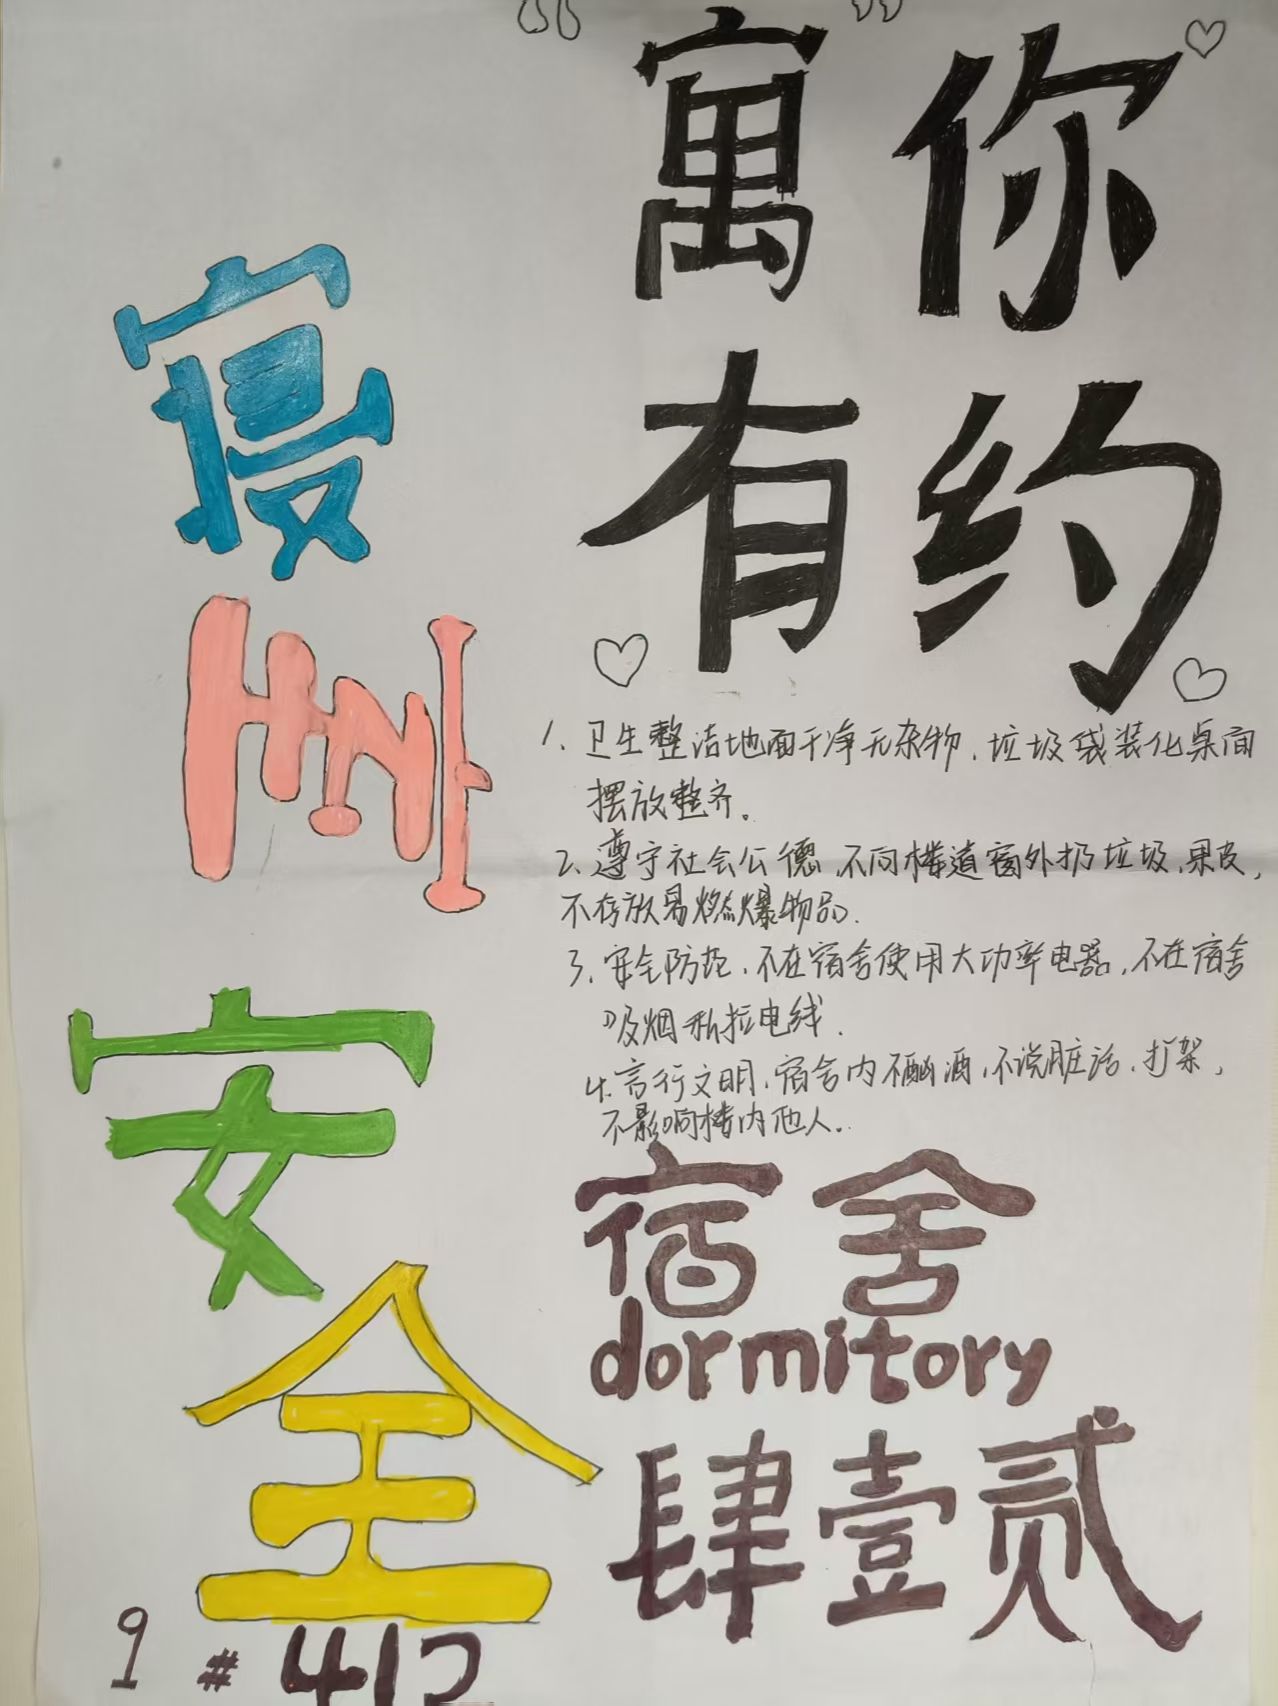 “寓”你
有约
寝
室
安
全
1、卫生整洁地面干净无杂物,垃圾袋装化桌面
摆放整齐。
2、遵守社会公德,不向楼道窗外扔垃圾,果皮,
不存放易燃爆物品.
3、安全防范,不在宿舍使用大功率电器,不在宿舍
吸烟私拉电线.
4.言行文明,宿舍内不酗酒,不说脏话,打架,
不影响楼内他人..
宿舍
dormitory
肆壹贰
9#412